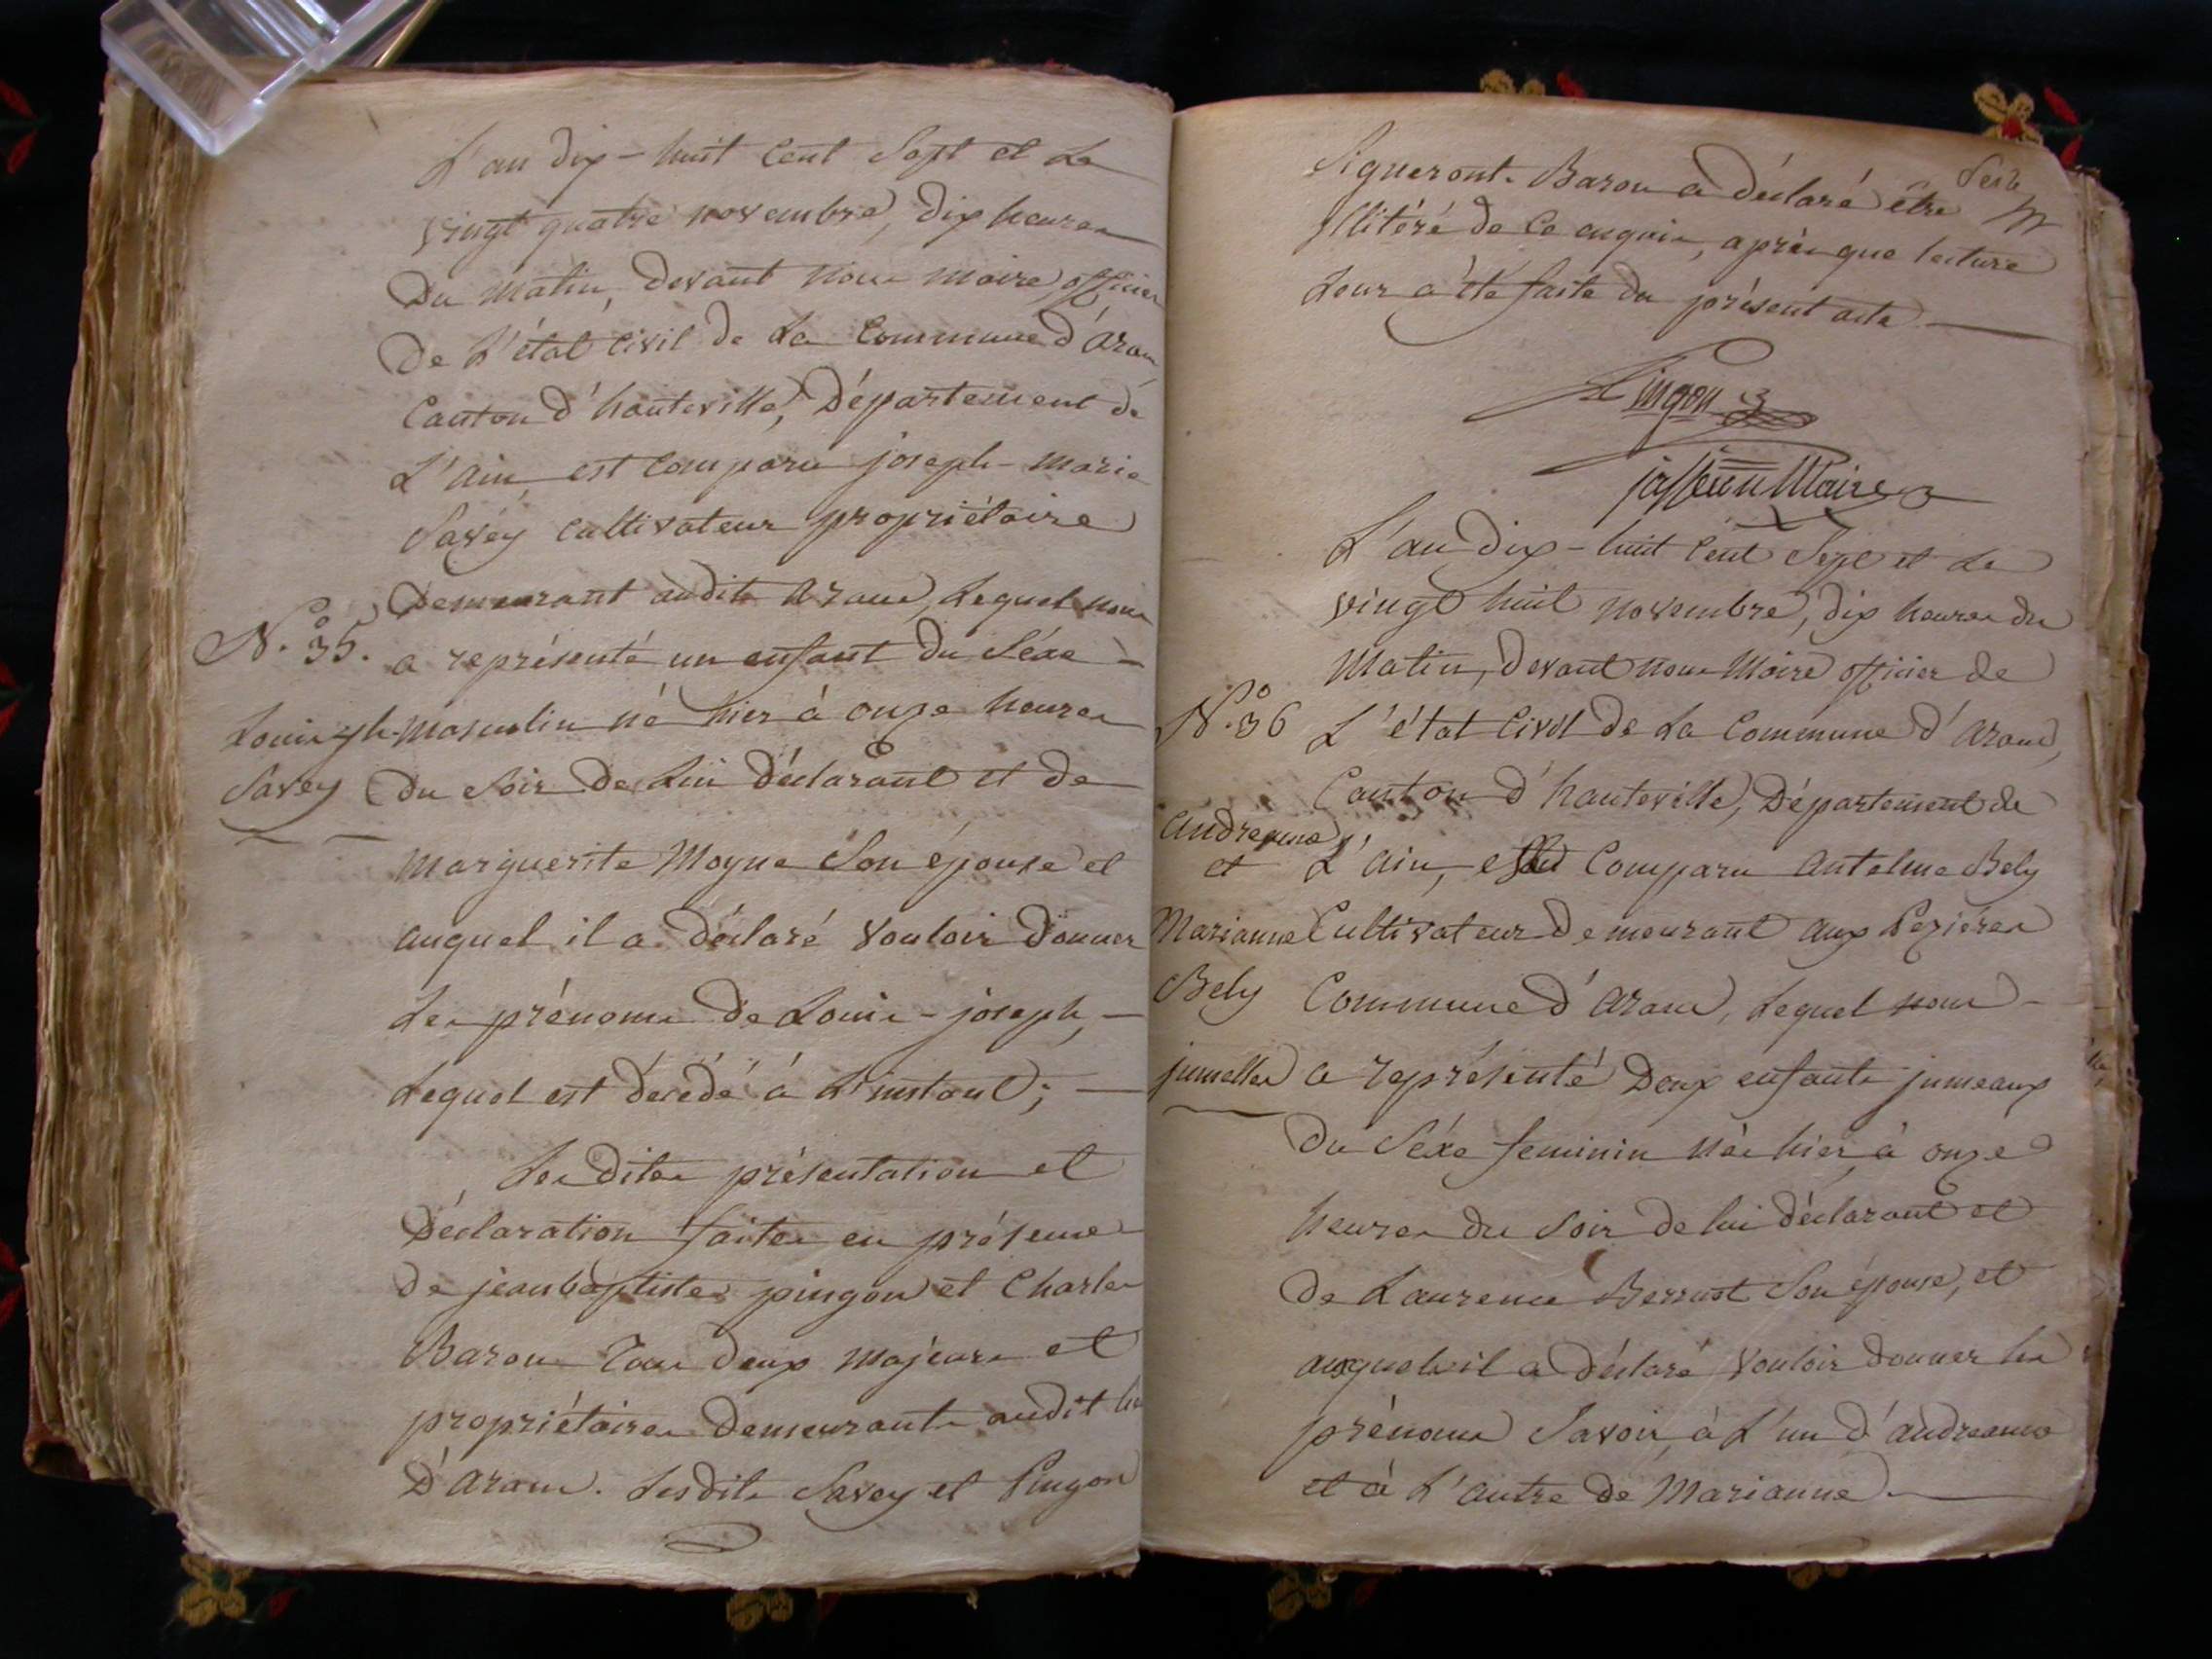 L'an dix-huit cent Sept et Le
vingt quatre novembre, dix heures
Du matin, devant nous maire officier
De L'état civil de La Commune d'aranc
Canton d'hauteville, Département de
L'ain est comparu joseph-marie
Savey cultivateur propriétaire
Demeurant audit aranc, Lequel nous
N.º 35.
a représenté un enfant du Séxe -
Louis jh. Savey
masculin né hier à onze heures
du soir de Lui déclarant et de
marguerite Moyne Son épouse et
auquel il a déclaré vouloir donner
Les prénoms de Louis-joseph, -
Lequel est décédé à L'instant; -
Les dites présentation et
Déclaration faites en présence
de jean baptiste pingon et Charles
Baron tous deux majeurs et
propriétaires demeurants audit lieu
D'aranc. Lesdits Savey et Pingon
Signeront. Baron a déclaré être
Illitéré de ce enquis, après que lecture
Leur a été faite du présent acte -
Pingon
Maire
L'an dix-huit cent Sept et Le
vingt huit novembre, dix heures du
Matin, devant nous Maire officier de
N.º 36
L'état Civil de La Commune d'aranc,
Canton d'hauteville, Département de
andreanne
et
L'ain, est Comparu antelme Bely
Marianne
Cultivateur Demeurant aux Pezieres
Bely
Commune d'aranc, Lequel nous -
jumelles
a représenté Deux enfants jumeaux
du Séxe feminin nés hier à onze
heures du Soir de lui déclarant et
de Laurence Son épouse, et
auxquels il a déclaré vouloir donner les
prénoms Savoir à L'un d'andreanne
et à L'autre de Marianne -